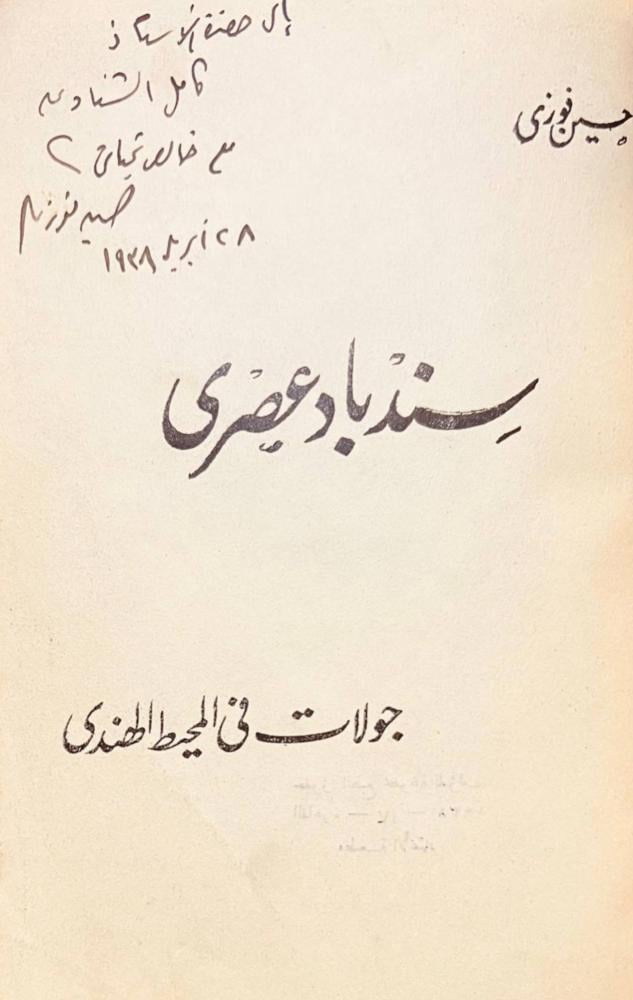 إلى حضرة الأستاذ
كامل الشناوي
مع خالص تحياتي
حسين فوزي
٢٨ أبريل ١٩٣٨
حسين فوزي
سندباد عصري
جولات في المحيط الهندي